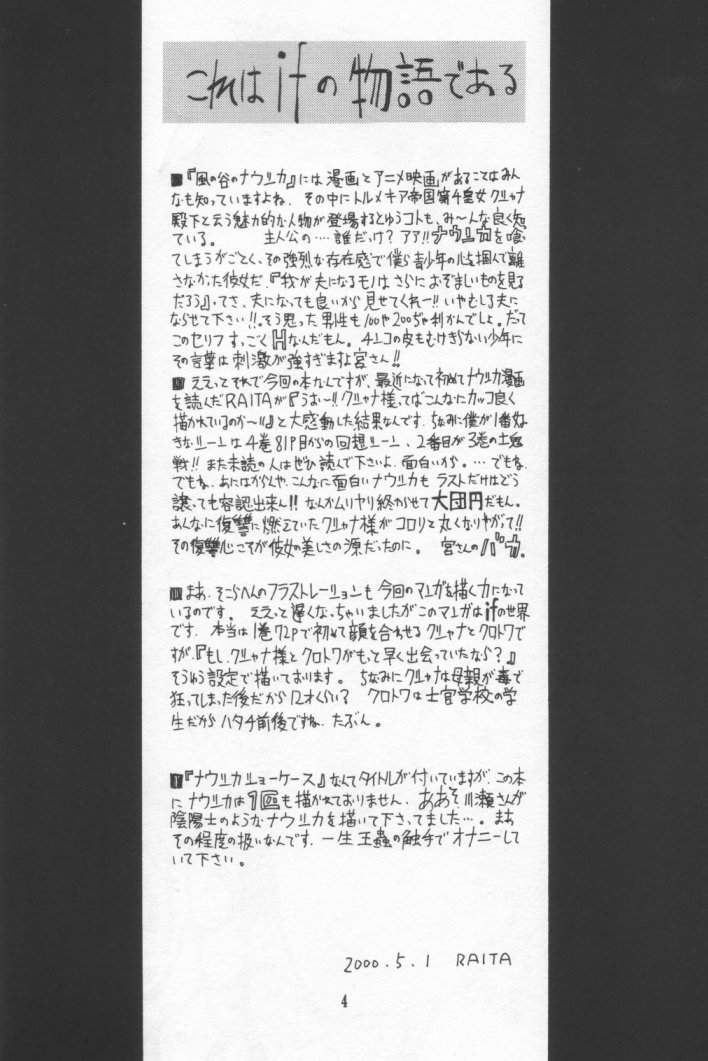 これは ifの 物語である
■『風の谷のナウシカ』には漫画とアニメ映画があることはみん
なも知っていますよね。その中にトルメキア帝国第4皇女クシャナ
殿下と云う魅力的な人物が登場するとゆうコトも、み〜んな良く知
ている。　主人公の‥‥誰だっけ? アア!!ナウシカを喰っ
てしまうがごとく、その強烈な存在感で僕ら青少年の心を掴んで離
さなかった彼女だ。『我が夫になるモノはさらにおぞましいものを見る
だろう』ってさ、夫になっても良いから見せてくれー!! いやむしろ夫に
ならせて下さい!!。そう思った男性も100や200じゃ利かんでしょ。だって
このセリフすっごくHなんだもん。4ンコの皮もむけきらない少年に
その言葉は刺激が強すぎますよ宮さん!!
■ ええっとそれで今回の本なんですが、最近になって初めてナウシカ漫画
を読んだRAITAが『うお〜!!クシャナ様ってばこんなにカッコ良く
描かれているのか〜!!』と大感動した結果なんです。ちなみに僕が1番好
きなシーンは4巻81P目からの回想シーン、2番目が3巻の土鬼
戦!! また未読の人はぜひ読んで下さいよ、面白いから。‥‥でもね、
でもね、おにはがんや、こんなに面白いナウシカも ラストだけはどう
譲っても容認出来ん!! なんかムリヤリ終わらせて大団円だもん。
あんなに復讐に燃えていたクシャナ様がコロリと丸くなりやがって!!
その復讐心こそが彼女の美しさの源だったのに。　宮さんのバカ。
■まあ、そこらへんのフラストレーションも今回のマンガを描く力になって
いるのです。 ええっと遅くなっちゃいましたがこのマンガはifの世界
です。 本当は1巻72Pで初めて顔を合わせるクシャナとクロトワで
すが、『もし、クシャナ様とクロトワがもっと早く出会っていたなら?』
そうゆう設定で描いております。 ちなみにクシャナは母親が毒で
狂ってしまった後だから12才くらい? クロトワは士官学校の学
生だからハタチ前後ですね、たぶん。
■『ナウシカショーケース』なんてタイトルが付いていますが、この本
にナウシカは1回も描かれておりません。ああそ、川瀬さんが
陰陽士のようなナウシカを描いて下さってました‥‥。まあ
その程度の扱いなんです、一生王蟲の触手でオナニーして
いて下さい。
2000.5.1 RAITA
4